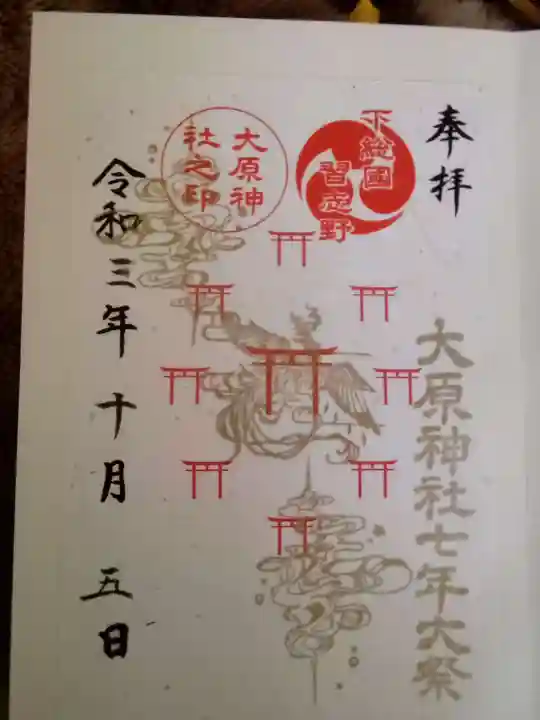 奉拝
大原神社七年大祭
下総國
習志野
大原神
社之印
令和三年十月五日